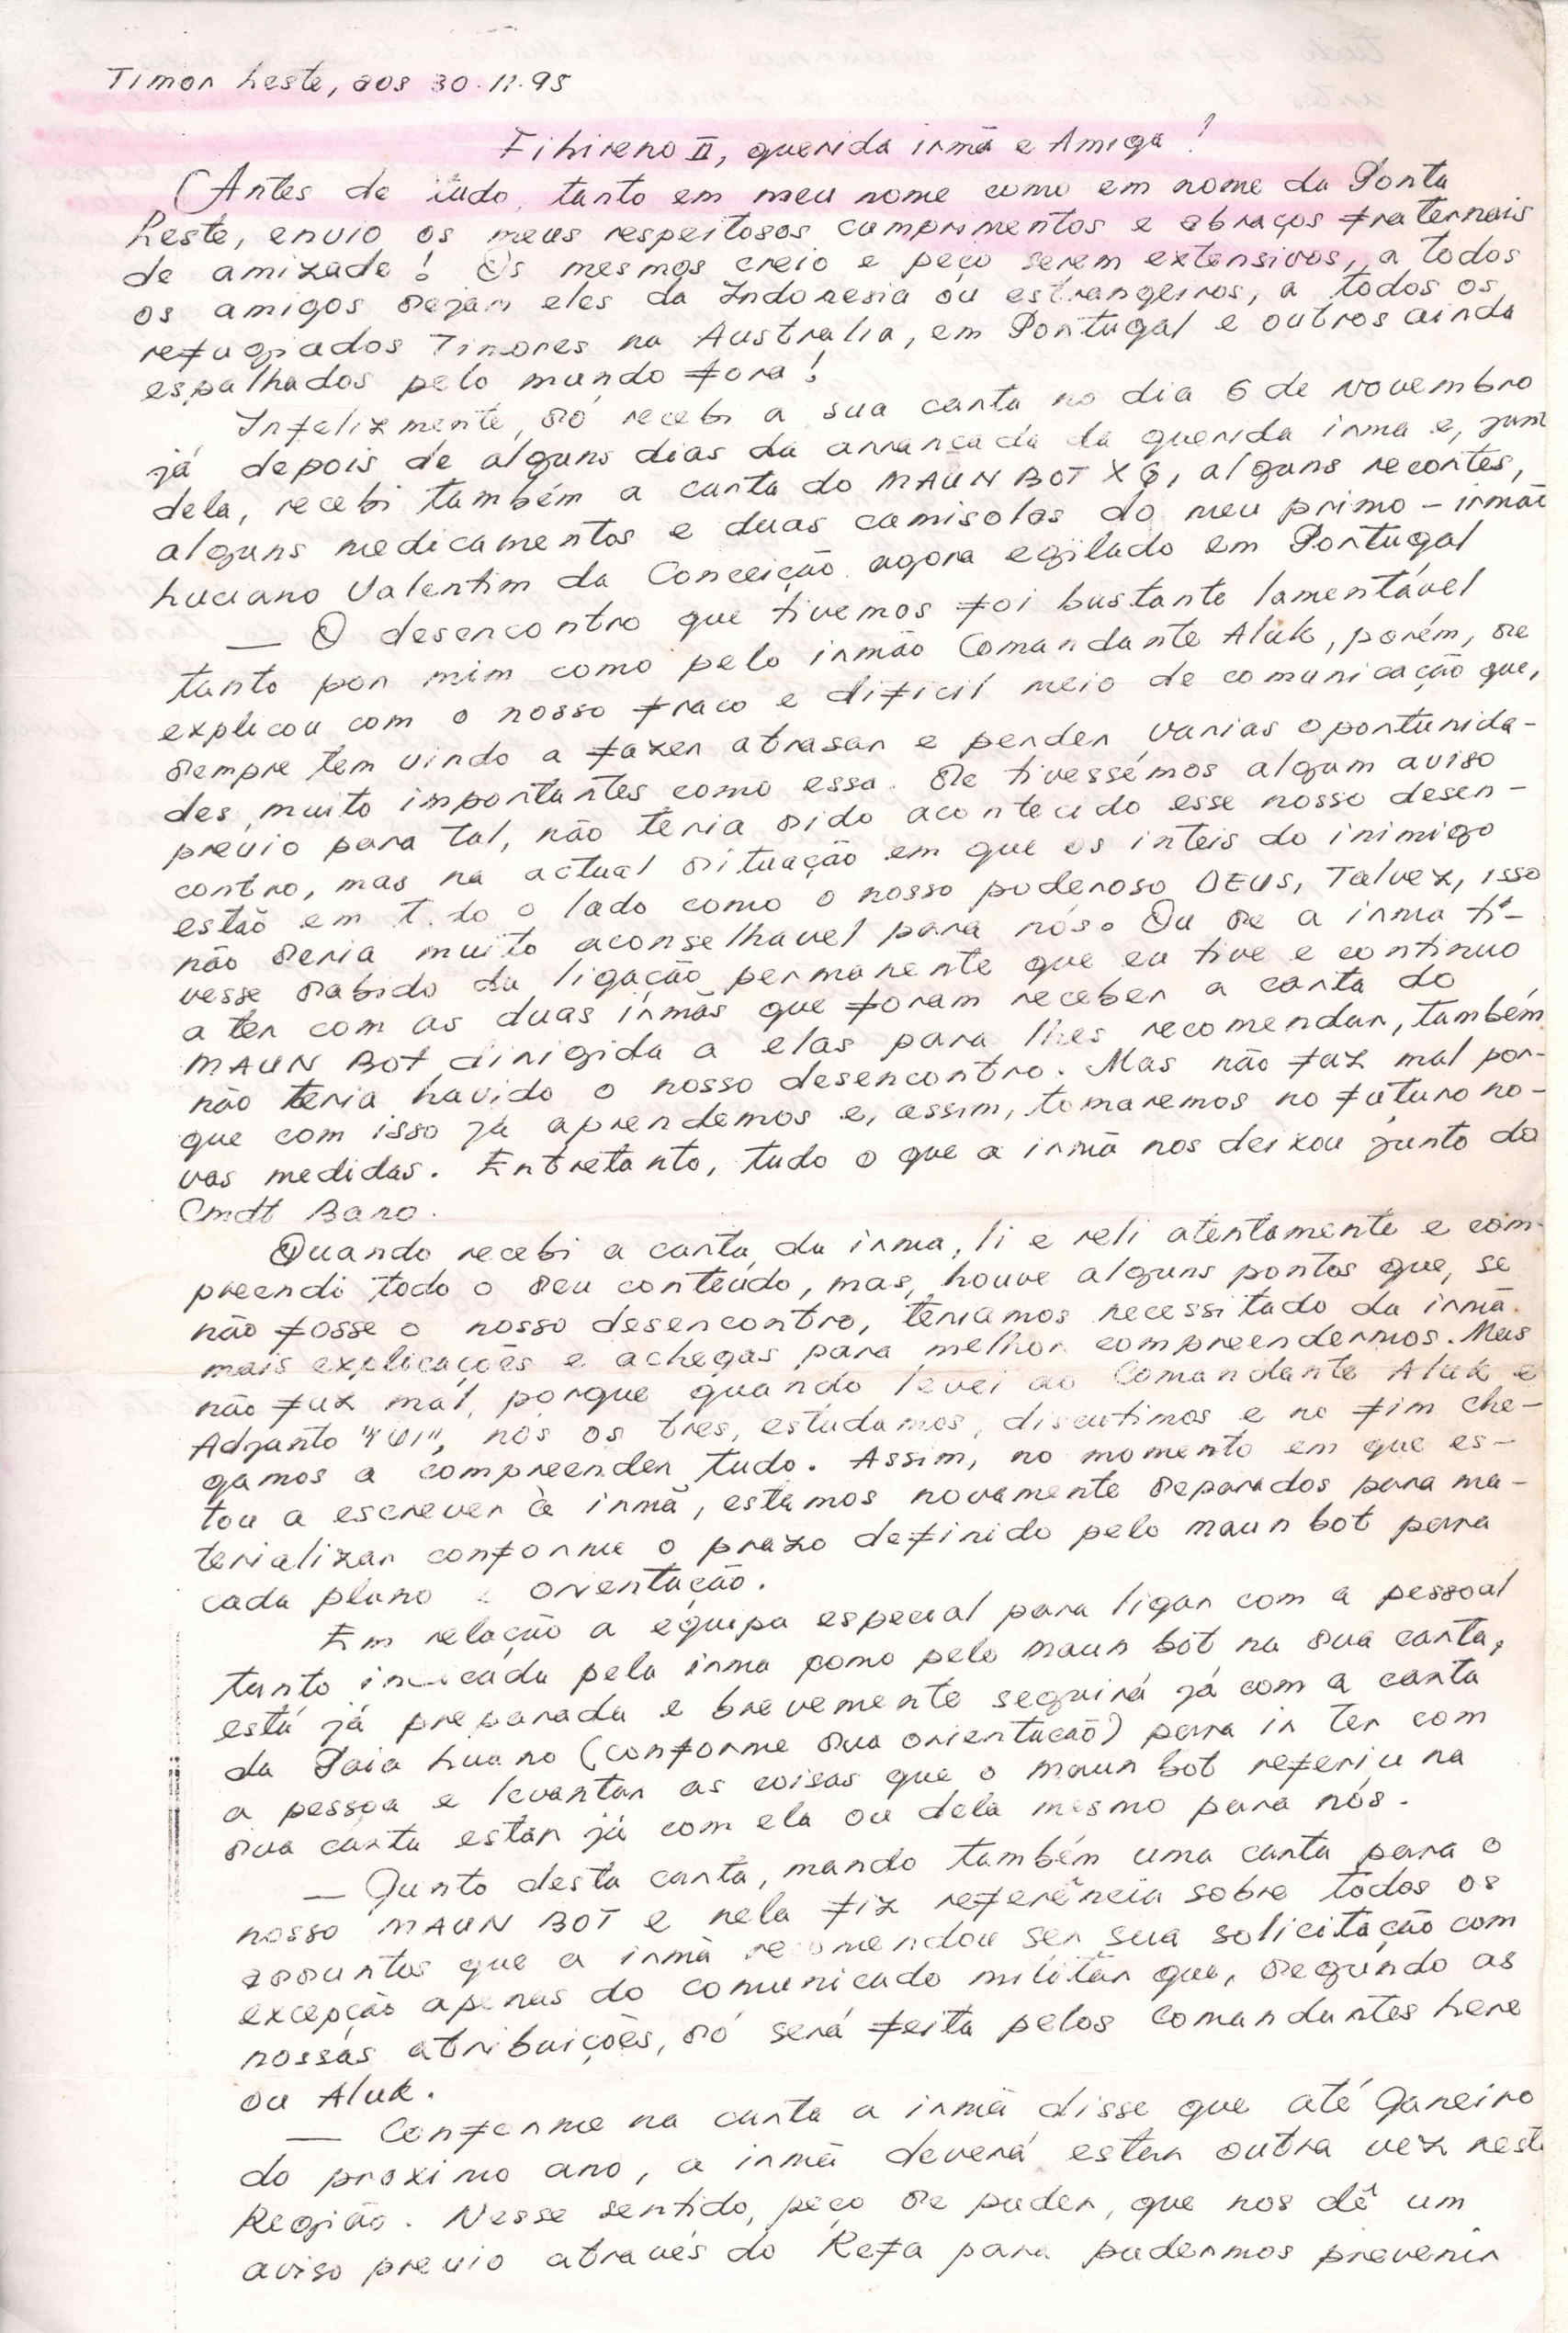 Timor Leste, aos 30.11.95
Fihireno II, querida irmã e Amiga!
(Antes de tudo, tanto em meu nome como em nome da Ponta
Leste, envio os meus respeitosos cumprimentos e abraços fraternais
de amizade! Os mesmos creio e peço serem extensivos, a todos
os amigos sejam eles da Indonesia ou estrangeiros, a todos os
refugiados Timores na Australia, em Portugal e outros ainda
espalhados pelo mundo fora!
Infelizmente, só recebi a sua carta no dia 6 de Novembro
já depois de alguns dias da arrancada da querida irma e, junt
dela, recebi também a carta do MAUN BOT XG, alguns recortes,
alguns medicamentos e duas camisolas do meu primo-irmão
Luciano Valentim da Conceição agora egilado em Portugal
— O desencontro que tivemos foi bastante lamentável
tanto por mim como pelo irmão Comandante Aluk, porém, se
explicou com o nosso fraco e dificil meio de comunicação que,
sempre tem vindo a fazer atrasar e perder varias oportunida-
des muito importantes como essa. Se tivessémos algum aviso
previo para tal, não teria sido acontecido esse nosso desen-
contro, mas na actual situação em que os inteis do inimigo
estão em todo o lado como o nosso poderoso DEUS, Talvez, isso
não seria muito aconselhavel para nós. Ou se a irma ti-
vesse sabido da ligação permanente que eu tive e continuo
a ter com as duas irmãs que foram receber a carta do
MAUN BOT dirigida a elas para lhes recomendar, também
não teria havido o nosso desencontro. Mas não faz mal por-
que com isso já aprendemos e, assim, tomaremos no futuro no-
vas medidas. Entretanto, tudo o que a irmã nos deixou junto do
Cmdt Baro.
Quando recebi a carta da irma, li e reli atentamente e com-
preendi todo o seu conteúdo, mas, houve alguns pontos que, se
não fosse o nosso desencontro, teriamos necessitado da irmã
mais explicações e achegas para melhor compreendermos. Mas
não faz mal, porque quando levei ao Comandante Aluk e
Adjunto nós os tres, estudamos, discutimos e no fim che-
gamos a compreender tudo. Assim, no momento em que es-
tou a escrever à irmã, estamos novamente separados para ma-
terializar conforme o prazo definido pelo maun bot para
cada plano e orientação.
Em relação a equipa especial para ligar com a pessoal
tanto indicada pela irma como pelo maun bot na sua carta,
está já preparada e brevemente seguirá já com a carta
da Paia Luano (conforme sua orientação) para ir ter com
a pessoa e levantar as coisas que o maun bot referiu na
sua carta estar já com ela ou dela mesmo para nós.
— Junto desta carta, mando também uma carta para o
nosso MAUN BOT e nela fiz referência sobre todos os
assuntos que a irmã recomendou ser sua solicitação com
excepção apenas do comunicado militar que, segundo as
nossas atribuições, só será feita pelos Comandantes Lere
ou Aluk.
— Conforme na carta a irmã disse que até Janeiro
do proximo ano, a irmã deverá estar outra vez nest
Região. Nesse sentido, peço se puder, que nos dê um
aviso previo através do Refa para pudermos prevenir